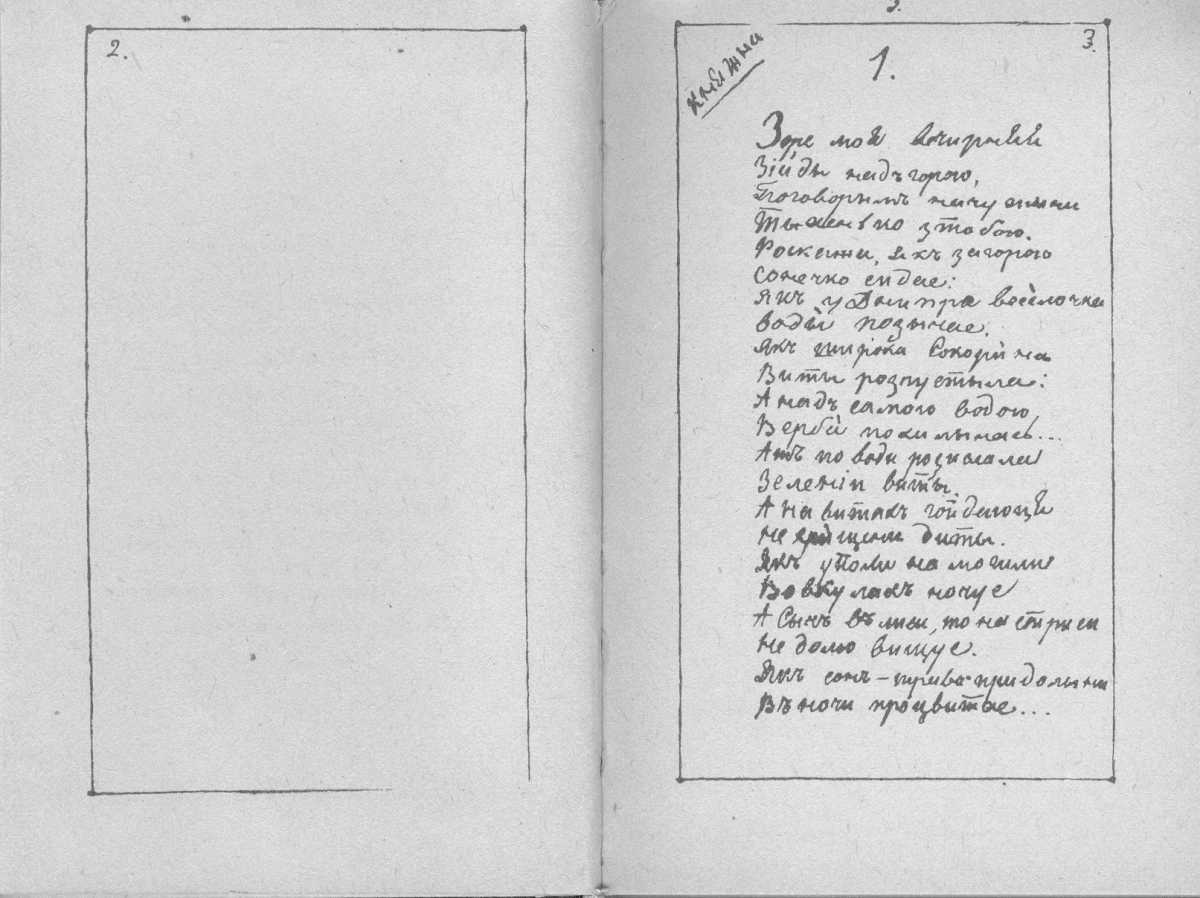 2.
3.
3.
Княжна
1.
Зоре моя вечирняя
Зійды надъ горою,
Поговорымъ
зтобою.
Роскажи, якъ загорою
Сонечко сидае:
Якъ у Днипра веселочка
Воду позычае.
Якъ широка Сокорына
Виты розпустыла:
А надъ самою водою,
Верба похылылась...
Ажъ по води розіслала
Зеленіи виты.
А на витахъ гойдаюця
не хрищени диты.
Якъ уполи на могили
Вовкулакъ ночує
А Сычъ въ лиси, то на стриси
Недолю вищує.
Якъ сонъ-трава при долыни
Въночи процвитае...